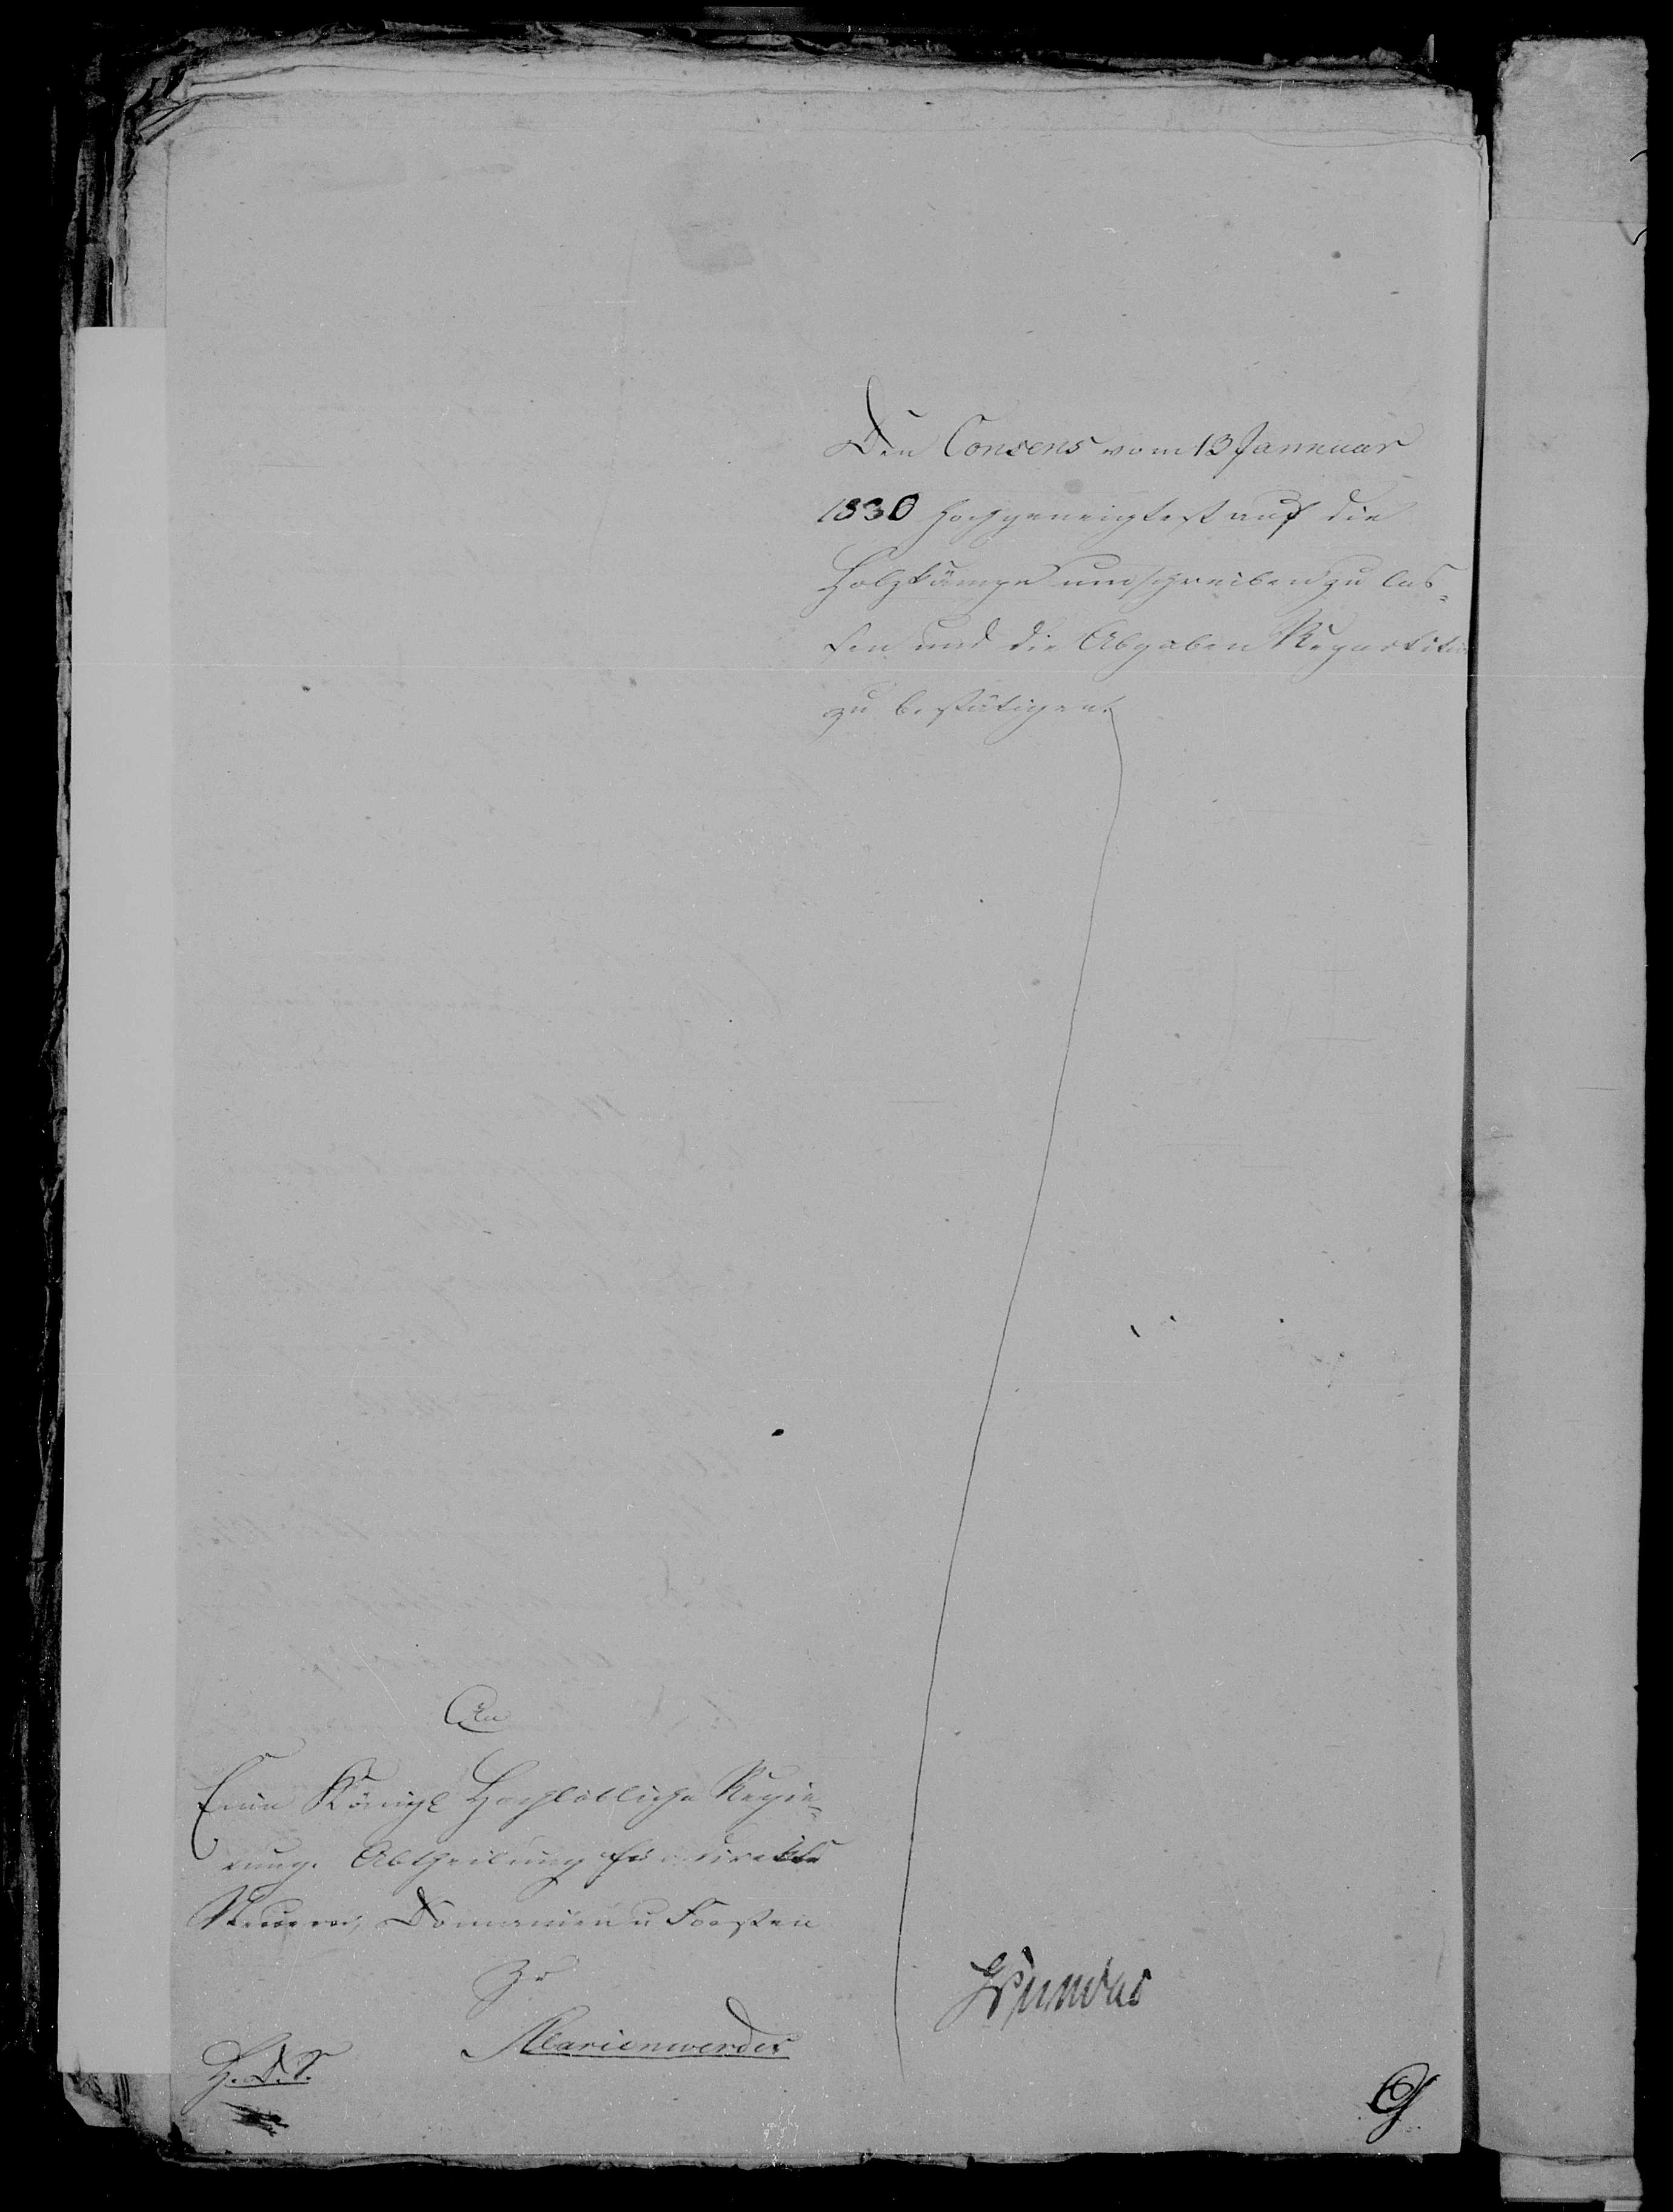 Den Consens vom 13 Januar
1830 hochgeneigtest auf die
Holzkämpe umschreiben zu las-
sen und die Abgaben Repartition
zu bestätigen.
An
Eine Königl Hochlöbliche Regie-
rung. Abtheilung für direkte
Steuern, Domainen u Forsten
zu
Marienwerder
H. D. S.